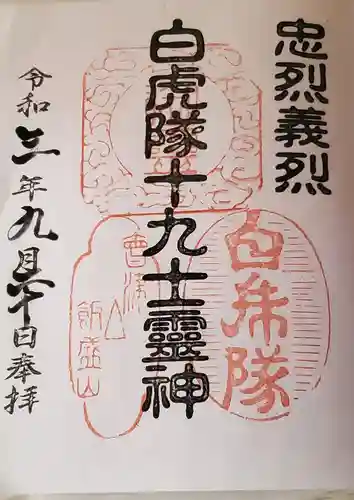 忠烈義烈
白虎隊十九士靈神
白虎隊
會津
飯盛山
令和三年九月二十日奉拝